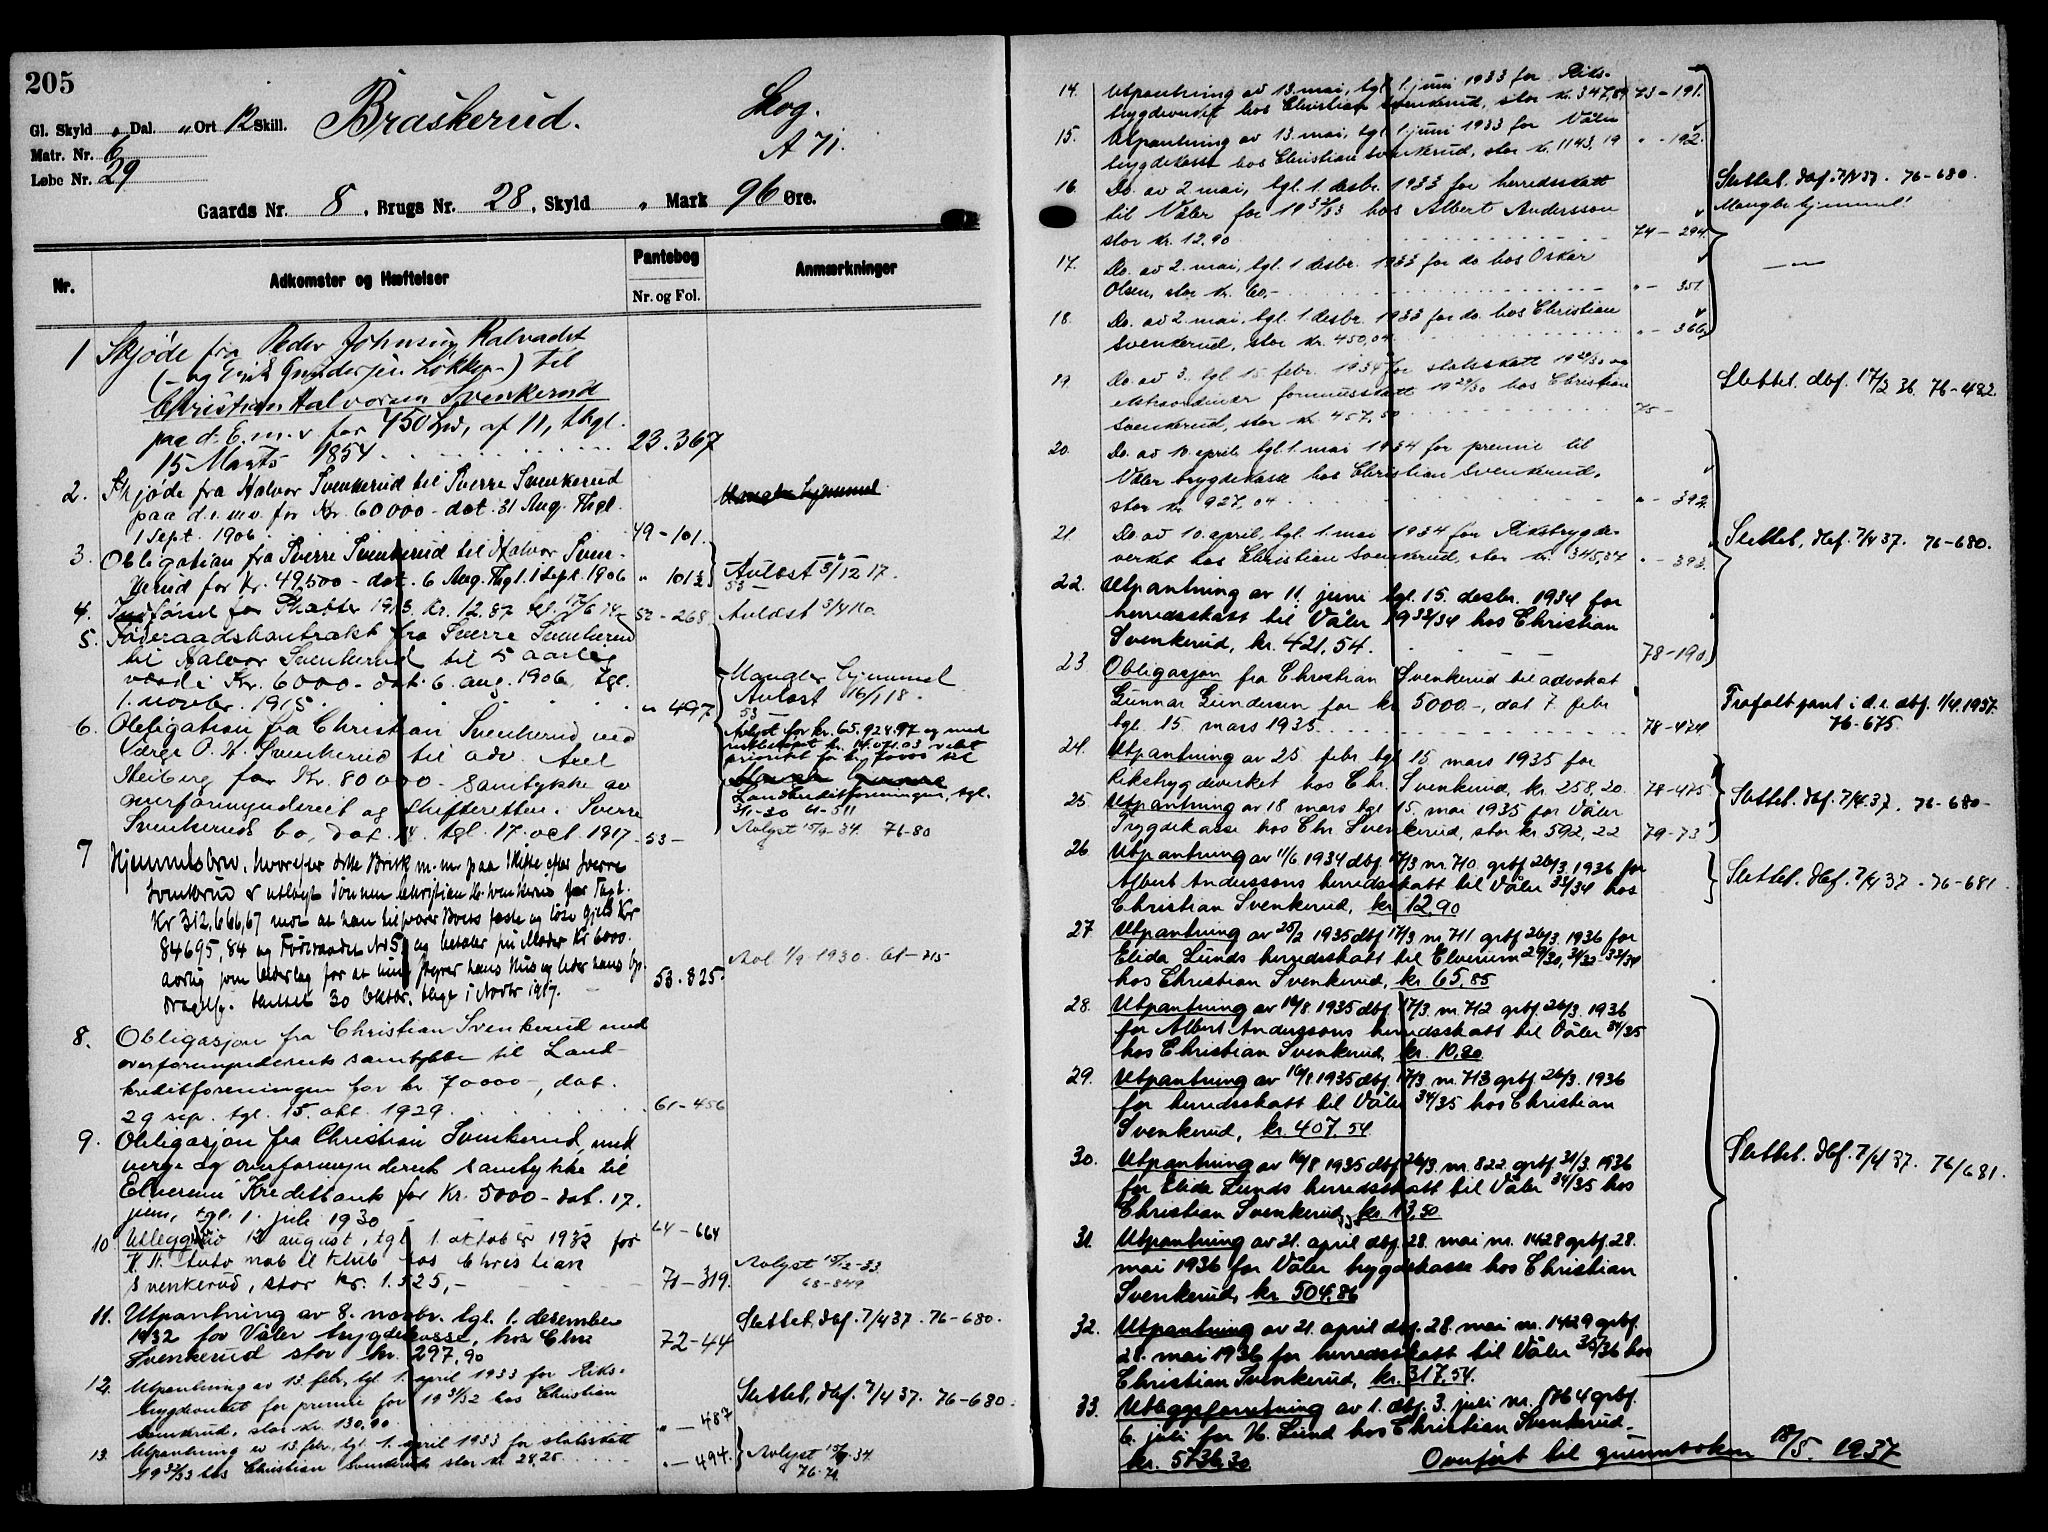 205
Gl. Skyld „ Dal. „ Ort 12 Skill. Braskerud. Skog.
Matr. Nr. 6 A 71.
Løbe Nr. 29
Gaards Nr. 8, Brugs Nr. 28, Skyld „ Mark 96 Øre.
Nr. Adkomster og Hæftelser Pantebog Anmærkninger
Nr. og Fol.
1 Skjøde fra Peder Johnsen
til
Christian Halvorsen Svenkerud
paa d. E. m. v. for 450 Spd, af 11, thgl.
15 Marts 1854 23.367
2. Skjøde fra Halvor Svenkerud til Sverre Svenkerud
paa d. e. m. v. for Kr. 60000 - dat. 31 Aug. Thgl. Mangler hjemmel
1 Sept. 1906 49-101.
3. Obligation fra Sverre Svenkerud til Halvor Sven-
kerud for Kr. 49,500 - dat. 6 Aug. Thgl. 1 Sept. 1906 " 101½ Avlæst 5/12 17.
53 —
4. for Skatter 1913. Kr. 12.87 52-268 Avlæst
5. Føderaadskontrakt fra Sverre Svenkerud
til Halvor Svenkerud til 5 aarlig
værdi Kr. 6000 - dat. 6. aug. 1906, tgl. Mangler hjemmel
1. novbr. 1915. " 497 Avlæst 16/1 18.
53 —
6. Obligation fra Christian Svenkerud ved Avlyst for kr. 65.924.97 og med
værge O. H. Svenkerud til adv. Axel restbeløpet kr. 14.071.03 veket
Heiberg for Kr. 80000 - samtykke av prioritet for kr. 70000 til
overformynderiet og skifteretten i Sverre Landkreditforeningen, tgl.
Svenkeruds bo, dat. 14. tgl. 17. oct. 1917 - 53 - 31/1-30 61-511
Avlyst 15/9-34. 76-80
7 Hjemmelsbrev, hvorefter dette Bruk m. m. paa Skifte efter Sverre
Svenkerud er utlagt Sønnen Christian H. Svenkerud for Taxt.
Kr 312,666,67 mot at han tilsvarer Boets faste og løse Gjeld Kr
84695,84 og Føderaadet Nr 5 og betaler sin Moder Kr 6000.
aarlig som vederlag for at hun styrer hans Hus og leder hans Op- 53.825. Avl. 1/9 1930. 61-715
dragelse. Skiftet 30 Oktbr. thgl. 1 Novbr 1917.
8. Obligasjon fra Christian Svenkerud med
overformynderiets samtykke til Land-
kreditforeningen for kr. 70000 -, dat.
29 sep. tgl. 15. okt. 1929. 61-456
9. Obligasjon fra Christian Svenkerud, med
verge og overformynderiets samtykke til
Elverum Kreditbank for kr. 5000 - dat. 17.
juni, tgl. 1. juli 1930 64-664
10 Utlegg av 12 august, tgl. 1. oktober 1932 for
K. N. Automobil Klub hos Christian Avlyst 15/12-33.
Svenkerud, stor kr. 1.325,- 71-319. 68-849
11. Utpantning av 8. novbr. tgl. 1. desember
1932 for Våler trygdekasse, hos Chr. 72-44 Slettet. dbf. 7/4 37. 76-680.
Svenkerud stor kr. 297,90
12. Utpantning av 13. febr, tgl. 1. april 1933 for Riks-
trygdverket for premie for 1931/32 hos Christian Slettet, dbf. 7/4 37. 76-680.
Svenkerud, stor kr. 130,90 " — 487
13. Utpantning av 13. febr. tgl. 1. april 1933 for statsskatt
1932/33 hos Christian Svenkerud stor kr. 28,25 " — 494. Avlyst 15/9-34.
76-79
14. Utpantning av 13. mai, tgl. 1. juni 1933 for Riks-
trygdverket hos Christian Svenkerud, stor kr. 347,84 73-191.
15. Utpantning av 13. mai, tgl. 1. juni 1933 for Våler
trygdekasse hos Christian Svenkerud, stor kr. 1143,19 " -192.
16. Do. av 2. mai, tgl. 1. desbr. 1933 for herredsskatt Slettet. dbf. 7/4 37. 76-680.
til Våler for 1932/33 hos Albert Andersson Mangler hjemmel
stor kr. 12,90 74-294.
17. Do. av 2. mai, tgl. 1. desbr. 1933 for do. hos Oskar — " —
Olsen, stor kr. 60,- " - 351
18. Do. av 2. mai, tgl. 1. desbr. 1933 for do. hos Christian
Svenkerud, stor kr. 450,04 " - 366
19. Do. av 3. tgl. 15. febr. 1934 for statsskatt 1929/30 og
ekstraordinær formuesskatt 1929/30 hos Christian Slettet. dbf. 17/3 36. 76-482.
Svenkerud, stor kr. 457,50 75 -
20. Do. av 10. april, tgl. 1. mai 1934 for premie til
Våler trygdekasse hos Christian Svenkerud,
stor kr. 927,04 " - 392
21 Do. av 10. april, tgl. 1. mai 1934 for Rikstrygde-
verket hos Christian Svenkerud, stor kr. 345,34 " - 393. Slettet, dbf. 7/4 37. 76-680.
22. Utpantning av 11. juni tgl. 15. desbr. 1934 for
herredsskatt til Våler 1933/34 hos Christian
Svenkerud, kr. 421,54. 78-190.
23 Obligasjon fra Christian Svenkerud til advokat
Gunnar Gundersen for kr 5000 -, dat 7 febr Frafalt pant i d. e. dbf. 1/4 1937.
tgl. 15 mars 1935 78-474 76-675.
24. Utpantning av 25. febr. tgl 15 mars 1935 for
Rikstrygdeverket hos Chr. Svenkerud, kr. 258,20. 78-475
25. Utpantning av 18 mars tgl 15. mai 1935 for Våler Slettet. dbf. 7/4 37. 76-680-
Trygdekasse hos Chr. Svenkerud, stor kr 592,22 79-73
26. Utpantning av 11/6 1934 dbf. 17/3 nr. 710 grbf 26/3 1936 for
Albert Anderssons herredsskatt til Våler 33/34 hos Slettet. dbf. 7/4 37. 76-681.
Christian Svenkerud, kr. 12,90
27 Utpantning av 25/2 1935 dbf 17/3 nr. 711 grbf 26/3. 1936 for
Elida Lunds herredsskatt til Elverum 29/30, 31/32-33/34
hos Christian Svenkerud, kr 65,85
28. Utpantning av 16/8 1935 dbf. 17/3. nr. 712 grbf. 26/3. 1936
for Albert Anderssons herredsskatt til Våler 34/35
hos Christian Svenkerud, kr. 10,20
29. Utpantning av 16/8. 1935 dbf. 17/3 nr. 713 grbf. 26/3. 1936
for herredsskatt til Våler 34/35 hos Christian
Svenkerud, kr. 407,54
30. Utpantning av 16/8 1935 dbf 26/3. nr. 822 grbf. 31/3. 1936 Slettet. dbf. 7/4 37. 76/681.
for Elida Lunds herredsskatt til Våler 34/35 hos
Christian Svenkerud, kr. 13,50
31. Utpantning av 21. april dbf. 28. mai nr. 1428 grbf. 28.
mai 1936 for Våler trygdekasse hos Christian
Svenkerud, kr. 504,86
32. Utpantning av 21. april dbf. 28. mai nr. 1429 grbf.
28. mai 1936 for herredsskatt til Våler 35/36 hos
Christian Svenkerud, kr. 317,54.
33. Utleggsforretning av 1. dbf. 3. juli nr. 1764 grbf.
6. juli for H. Lund hos Christian Svenkerud -
kr. 5736,30 Overført til grunnboken 18/5. 1937